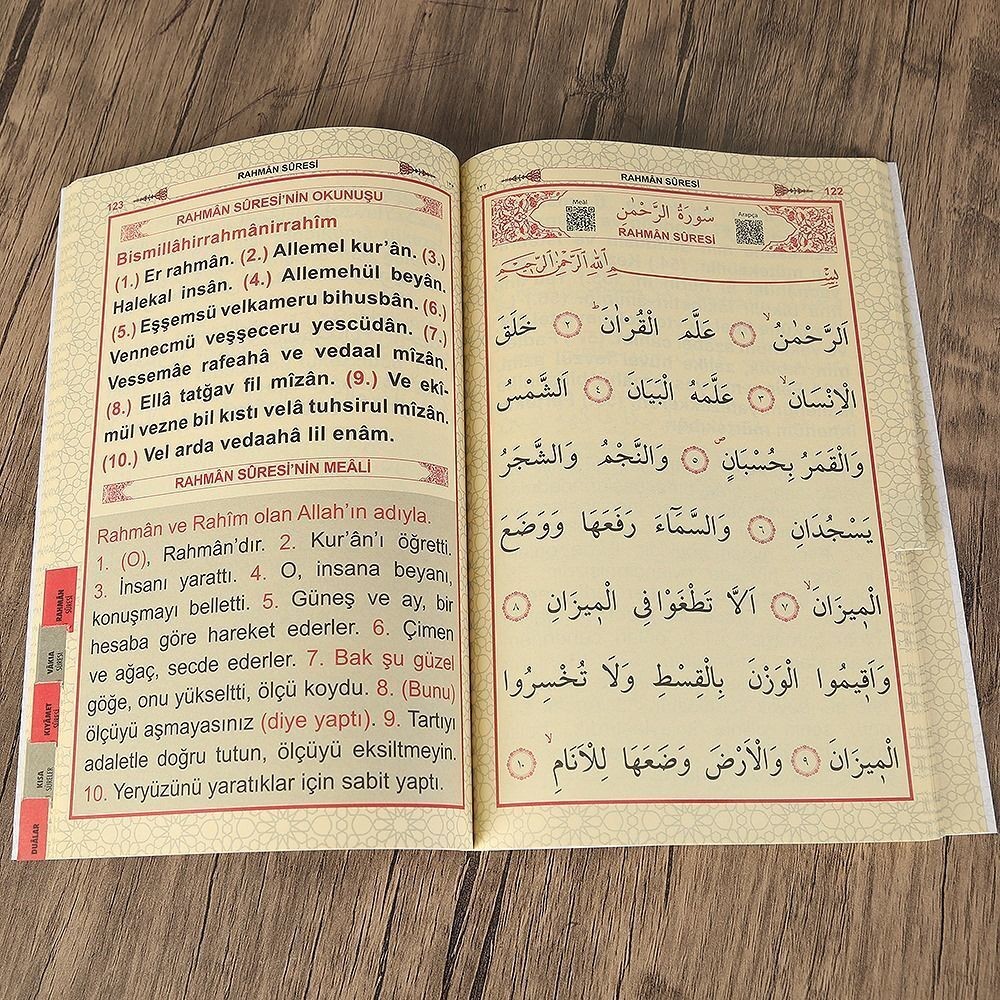 RAHMÂN SÛRESİ
122
Meâl
سُورَةُ الرَّحْمٰنِ
Arapça
RAHMÂN SÛRESİ
بِسْمِ اللّٰهِ الرَّحْمٰنِ الرَّحِيمِ
اَلرَّحْمٰنُۙ ﴿١﴾ عَلَّمَ الْقُرْاٰنَۜ ﴿٢﴾ خَلَقَ
الْاِنْسَانَۙ ﴿٣﴾ عَلَّمَهُ الْبَيَانَ ﴿٤﴾ اَلشَّمْسُ
وَالْقَمَرُ بِحُسْبَانٍۖ ﴿٥﴾ وَالنَّجْمُ وَالشَّجَرُ
يَسْجُدَانِ ﴿٦﴾ وَالسَّمَٓاءَ رَفَعَهَا وَوَضَعَ
الْم۪يزَانَۙ ﴿٧﴾ اَلَّا تَطْغَوْا فِي الْم۪يزَانِ ﴿٨﴾
وَاَق۪يمُوا الْوَزْنَ بِالْقِسْطِ وَلَا تُخْسِرُوا
الْم۪يزَانَ ﴿٩﴾ وَالْاَرْضَ وَضَعَهَا لِلْاَنَامِۙ ﴿١٠﴾
RAHMÂN SÛRESİ
123
RAHMÂN SÛRESİ’NİN OKUNUŞU
Bismillâhirrahmânirrahîm
(1.) Er rahmân. (2.) Allemel kur’ân. (3.)
Halekal insân. (4.) Allemehül beyân.
(5.) Eşşemsü velkameru bihusbân. (6.)
Vennecmü veşşeceru yescüdân. (7.)
Vessemâe rafeahâ ve vedaal mîzân.
(8.) Ellâ tatğav fil mîzân. (9.) Ve ekî-
mül vezne bil kıstı velâ tuhsirul mîzân.
(10.) Vel arda vedaahâ lil enâm.
RAHMÂN SÛRESİ’NİN MEÂLİ
Rahmân ve Rahîm olan Allah’ın adıyla.
1. (O), Rahmân’dır. 2. Kur’ân’ı öğretti.
3. İnsanı yarattı. 4. O, insana beyanı,
konuşmayı belletti. 5. Güneş ve ay, bir
hesaba göre hareket ederler. 6. Çimen
ve ağaç, secde ederler. 7. Bak şu güzel
göğe, onu yükseltti, ölçü koydu. 8. (Bunu)
ölçüyü aşmayasınız (diye yaptı). 9. Tartıyı
adaletle doğru tutun, ölçüyü eksiltmeyin.
10. Yeryüzünü yaratıklar için sabit yaptı.
RAHMÂN
SÛRESİ
VÂKIA
SÛRESİ
KIYÂMET
SÛRESİ
KISA
SÛRELER
DUÂLAR